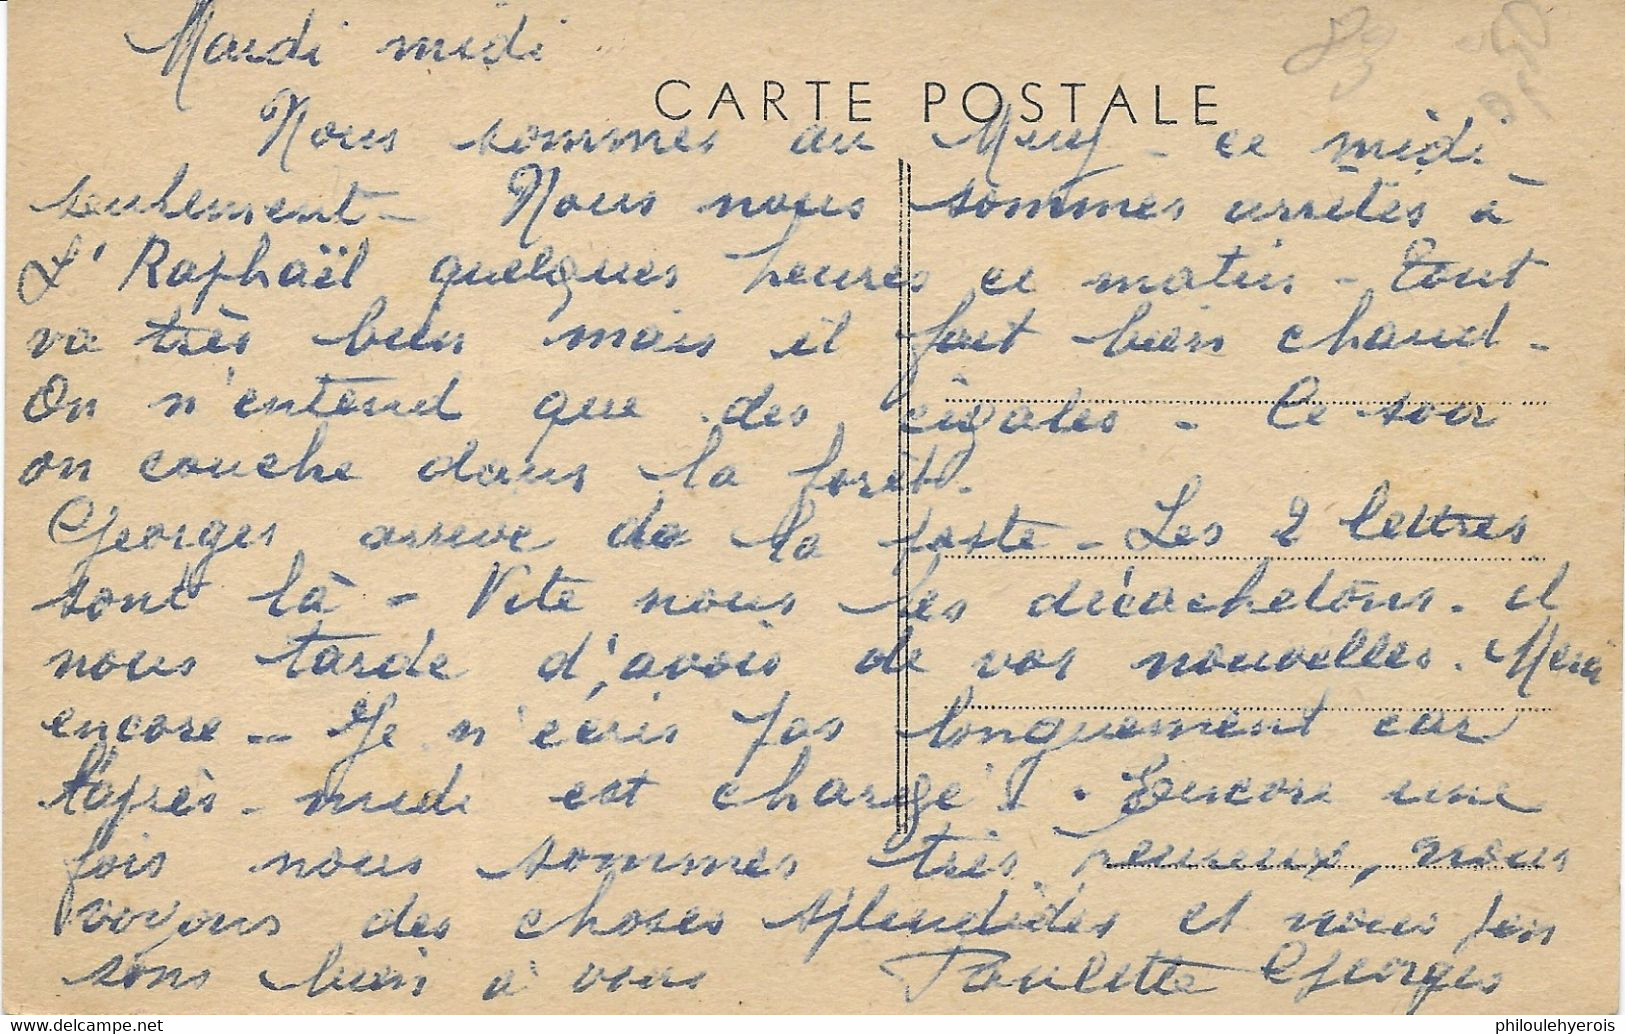 Mardi midi
CARTE POSTALE
Nous sommes au Muy - ce midi
seulement - Nous nous sommes arrêtés à
St Raphaël quelques heures ce matin - Tout
va très bien mais il fait bien chaud -
On n'entend que des cigales - Ce soir
on couche dans la forêt.
Georges arrive de la poste - Les 2 lettres
sont là - Vite nous les décachetons. il
nous tarde d'avoir de vos nouvelles. Merci
encore - Je n'écris pas longuement car
l'après-midi est chargé! - Encore une
fois nous sommes très heureux, nous
voyons des choses splendides et nous pen
sons bien à vous Paulette Georges
www.delcampe.net
philoulehyerois